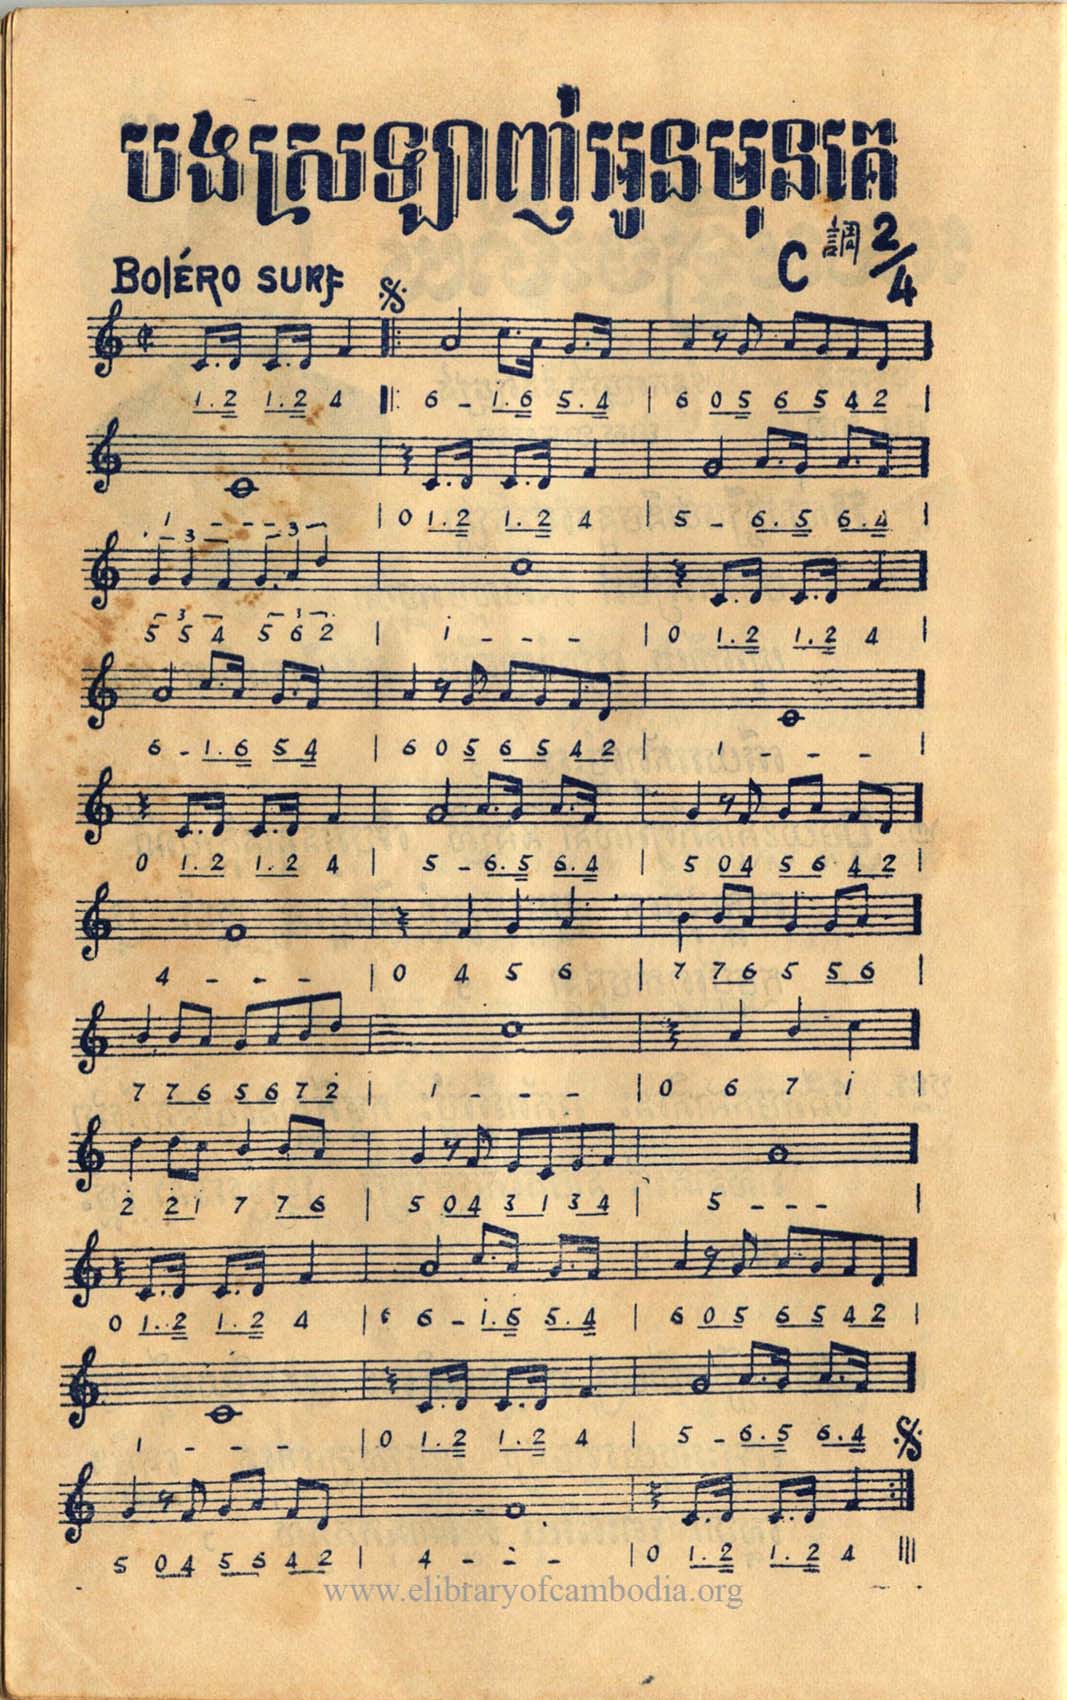 បងស្រឡាញ់អូនមុនគេ
BOLÉRO SURF
C 調 2/4
1.2 1.2 4 6 - 1.6 5.4 | 6 05 6 5 4 2 |
1 - - - | 0 1.2 1.2 4 | 5 - 6.5 6.4 |
3 3
3 3
5 5 4 5 6 2 | 1 - - - | 0 1.2 1.2 4 |
6 - 1.6 5 4 | 6 0 5 6 5 4 2 | 1 - - - |
0 1.2 1.2 4 | 5 - 6.5 6.4 | 5 04 5 6 4 2 |
4 - - - | 0 4 5 6 | 7 76 5 56
7 76 5672 | 1 - - - | 0 6 7 i
2 21 7 76 | 5 04 31 34 | 5 - - - |
0 1.2 1.2 4 | 6 6 - i.6 5.4 | 6 05 65 42 |
1 - - - | 0 1.2 1.2 4 | 5 - 6.5 6.4
5 04 55 42 | 4 - - - | 0 1.2 1.2 4 |||
www.elibraryofcambodia.org